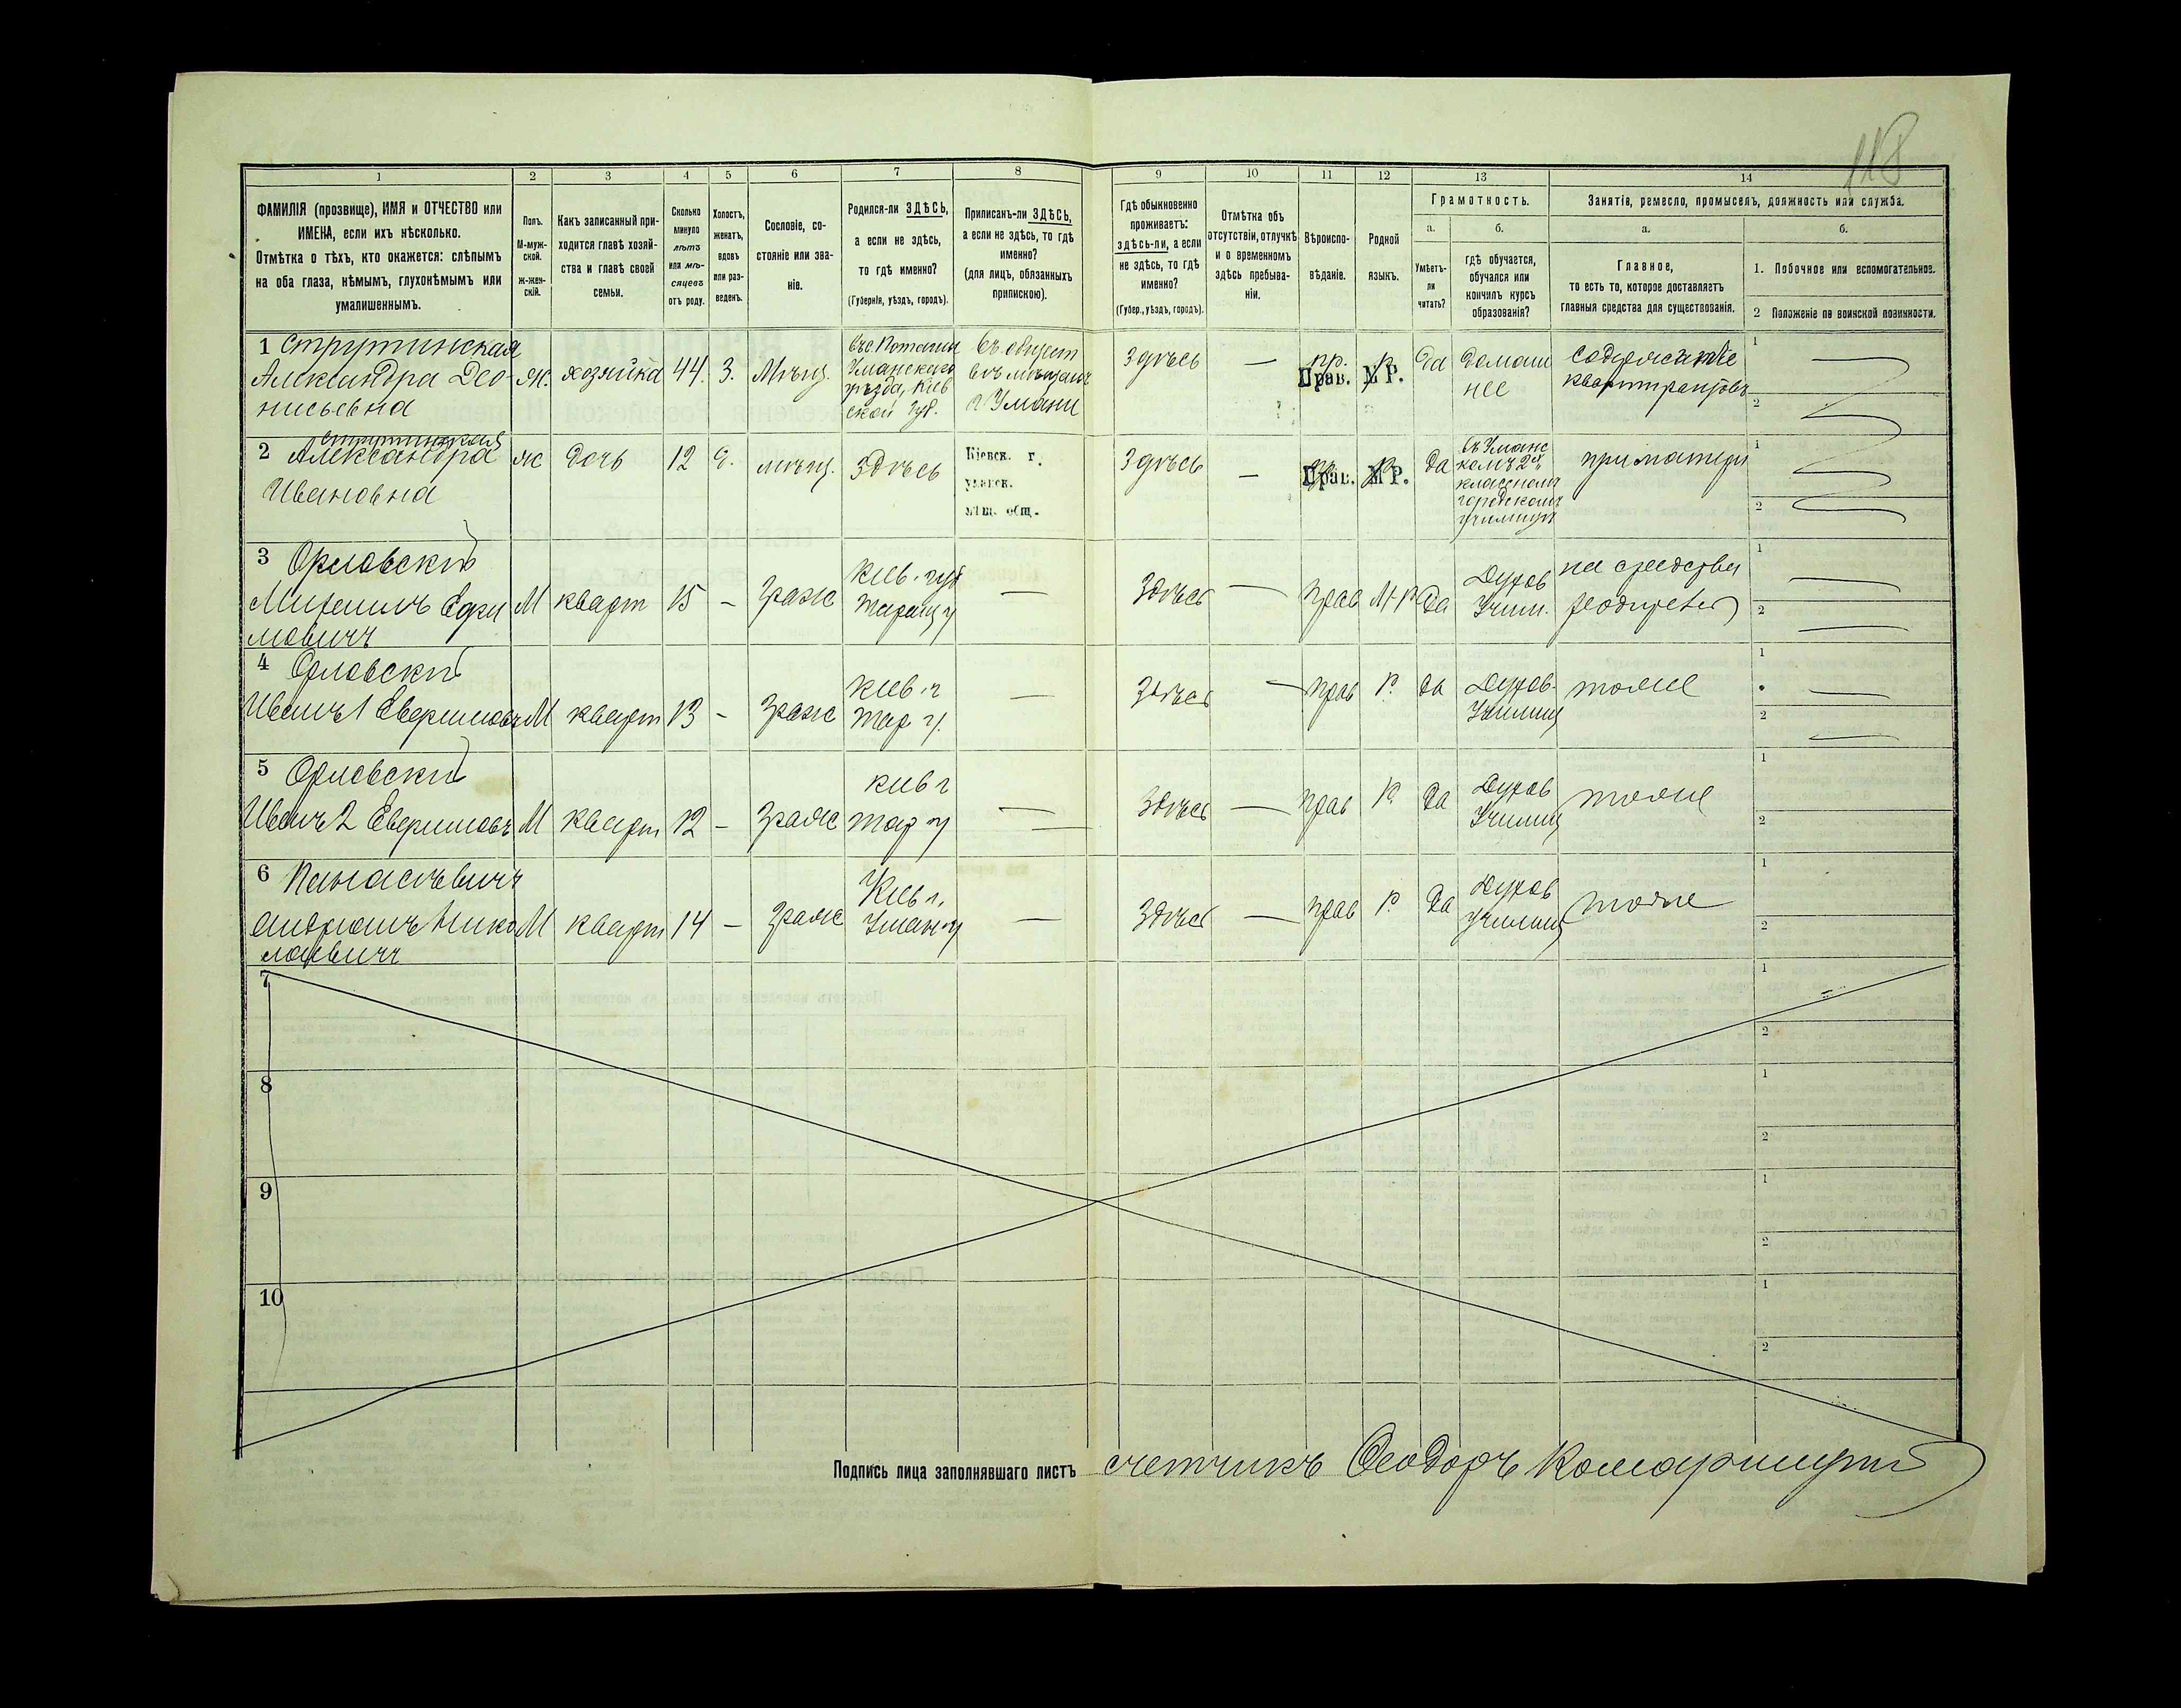 118
1 2 3 4 5 6 7 8 9 10 11 12 13 14
ФАМИЛІЯ (прозвище), ИМЯ и ОТЧЕСТВО или
ИМЕНА, если ихъ нѣсколько.
Отмѣтка о тѣхъ, кто окажется: слѣпымъ
на оба глаза, нѣмымъ, глухонѣмымъ или
умалишеннымъ.
Полъ.
М-муж-
ской.
Ж-жен-
скій.
Какъ записанный при-
ходится главѣ хозяй-
ства и главѣ своей
семьи.
Сколько
минуло
лѣтъ
или мѣ-
сяцевъ
отъ роду.
Холостъ,
женатъ,
вдовъ
или раз-
веденъ.
Сословіе, со-
стояніе или зва-
ніе.
Родился-ли ЗДѢСЬ,
а если не здѣсь,
то гдѣ именно?
(Губернія, уѣздъ, городъ).
Приписанъ-ли ЗДѢСЬ,
а если не здѣсь, то гдѣ
именно?
(для лицъ, обязанныхъ
припискою).
Гдѣ обыкновенно
проживаетъ:
здѣсь-ли, а если
не здѣсь, то гдѣ
именно?
(Губер., уѣздъ, городъ).
Отмѣтка объ
отсутствіи, отлучкѣ
и о временномъ
здѣсь пребыва-
ніи.
Вѣроиспо-
вѣданіе.
Родной
языкъ.
Грамотность.
а.
Умѣетъ-
ли
читать?
б.
гдѣ обучается,
обучался или
кончилъ курсъ
образованія?
Занятія, ремесло, промыселъ, должность или служба.
а.
Главное,
то есть то, которое доставляетъ
главныя средства для существованія.
б.
1. Побочное или вспомогательное.
2 Положеніе по воинской повинности.
1 Струтинская
Александра Део-
нисьевна
ж.
хозяйка
44.
З.
Мѣщ.
Уманского
уѣзда, Кіев
ской губ.
г Умани
Здѣсь
—
пр.
Прав.
М Р.
Да
домаш
нее
содержаніе
квартирантовъ
1
2
2 Струтинская
Александра
Ивановна
ж
дочь
12
д.
мѣщ.
Здѣсь
Кіевск. г.
уманск.
мѣщ. общ.
Здѣсь
—
Прав.
М Р.
да
въ Уманс
комъ 2х
классномъ
городскомъ
училищѣ
при матери
1
2
3 Орловскій
М
кварт
15
—
Гражд
Кіев. губ
Таращ у
—
Здѣсь
—
прав
М Р
Да
Духов
Учил.
на средства
родителей
1
2
4 Орловскій
Иванъ 1
М
кварт
13
-
Гражд
Кіев. г
Тар у.
—
Здѣсь
—
прав
Р.
да
Духов.
Училищ
тоже
1
2
5 Орловскій
Иванъ 2
М
кварт
12
-
Гражд
Кіев г
Тар у
—
Здѣсь
—
прав
Р.
да
Духов
Училищ
тоже
1
2
6
Нико
лаевичъ
М
кварт
14
—
Гражд
Кіев г.
Уман у
—
Здѣсь
—
прав
Р.
Да
Духов
училищ
тоже
1
2
7
1
2
8
1
2
9
1
2
10
1
2
Подпись лица заполнявшаго листъ счетчикъ Ѳеодоръ Комарницкій